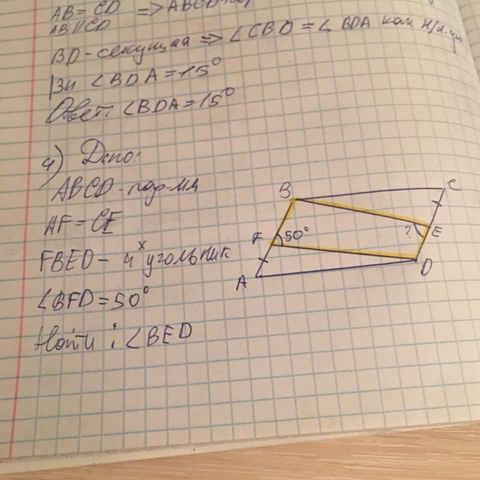 AB = CD => ABCD-пар
AB || CD
BD-секущая => ∠CBD = ∠BDA как н/л. уг
3) ∠BDA = 15°
Ответ: ∠BDA = 15°
4) Дано:
ABCD - пар-мм
AF = CE
FBED - 4х угольник
∠BFD = 50°
Найти: ∠BED
B
C
F
50°
?
E
A
D